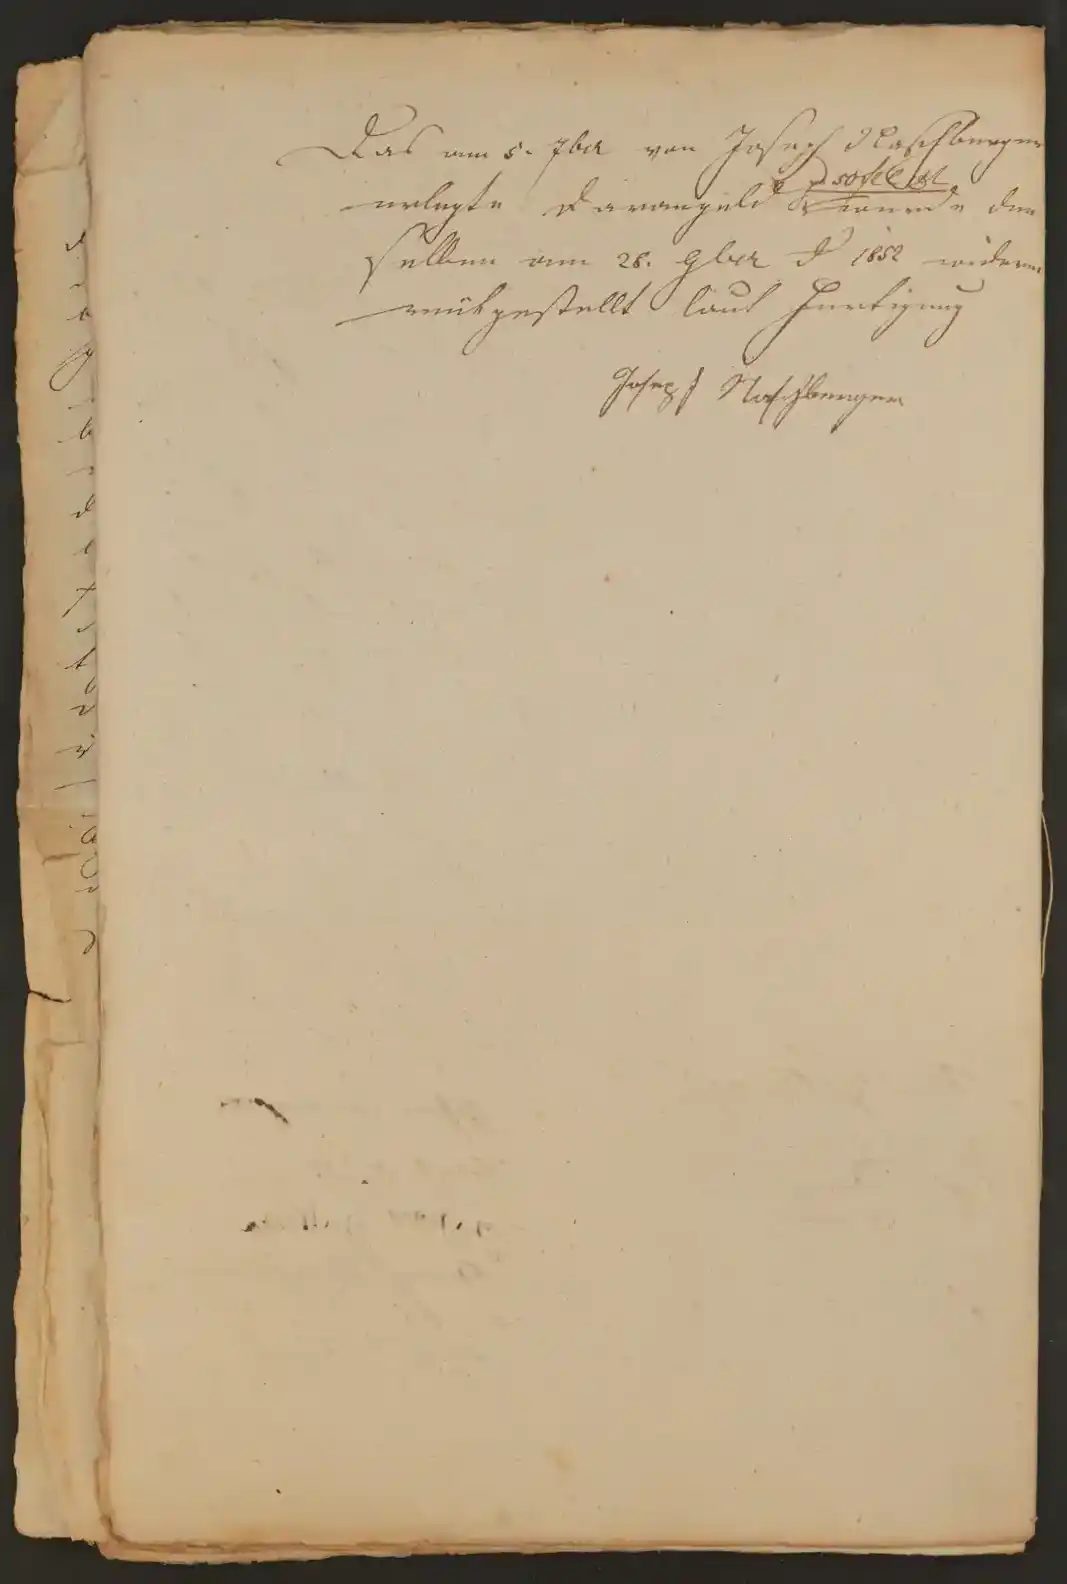 Das am 5. 7ber von Joseph Naschberger
erlegte Darangeld wurde dem
selben am 28. 9ber 1852 widerum
rükgestellt laut Fertigung
Joseph Naschberger